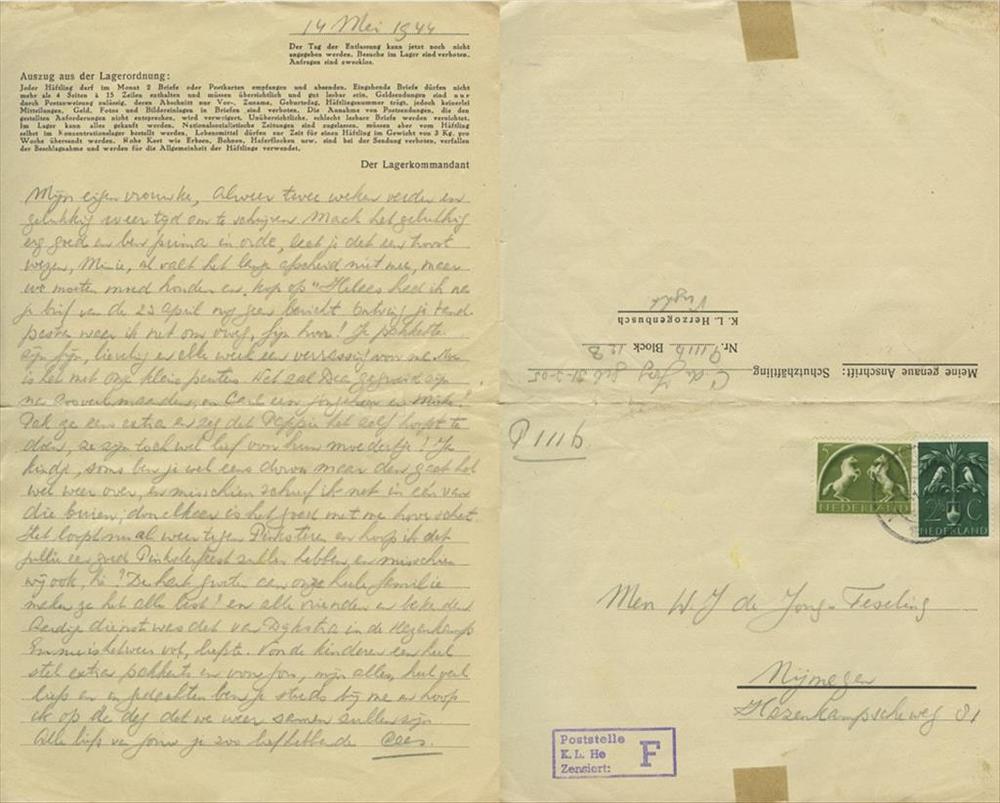 14 Mei 1944
Der Tag der Entlassung kann jetzt noch nicht
angegeben werden. Besuche im Lager sind verboten.
Anfragen sind zwecklos.
Auszug aus der Lagerordnung:
Jeder Häftling darf im Monat 2 Briefe oder Postkarten empfangen und absenden. Eingehende Briefe dürfen nicht
mehr als 4 Seiten à 15 Zeilen enthalten und müssen übersichtlich und gut lesbar sein. Geldsendungen sind nur
durch Postanweisung zulässig, deren Abschnitt nur Vor-, Zuname, Geburtstag, Häftlingsnummer trägt, jedoch keinerlei
Mitteilungen. Geld, Fotos und Bildereinlagen in Briefen sind verboten. Die Annahme von Postsendungen, die den
gestellten Anforderungen nicht entsprechen, wird verweigert. Unübersichtliche, schlecht lesbare Briefe werden vernichtet.
Im Lager kann alles gekauft werden. Nationalsozialistische Zeitungen sind zugelassen, müssen aber vom Häftling
selbst im Konzentrationslager bestellt werden. Lebensmittel dürfen zur Zeit für einen Häftling im Gewicht von 3 Kg. pro
Woche übersandt werden. Rohe Kost wie Erbsen, Bohnen, Haferflocken usw. sind bei der Sendung verboten, verfallen
der Beschlagnahme und werden für die Allgemeinheit der Häftlinge verwendet.
Der Lagerkommandant
Mijn eigen vrouwke, Alweer twee weken verder en
gelukkig weer tyd om te schrijven. Mach het gelukkig
erg goed en ben prima in orde, laat je dat een troost
wezen, Minie, al valt het lange afscheid niet mee, maar
we moeten moed houden en "kop op" Helaas had ik na
je brief van de 23 april nog geen bericht
weer ik net om vroeg, fijn hoor! Je pakketten
zijn fijn, en elke week een verrassing voor me. Hoe
is het met onze kleine
en Carl een
ze eens extra en zeg dat Pappie het zelf hoopt te
doen, ze zijn toch wel lief voor hun moedertje! Je
soms ben je wel eens down maar dan gaat het
wel weer over, en misschien schreef ik net in een van
die buien, is het goed met me hoor schat.
Het loopt nu al weer tegen Pinksteren en hoop ik dat
jullie een goed Pinksterfeest zullen hebben en misschien
wij ook, hè! De hart. groeten aan onze heele familie
maken ze het allen best! en alle vrienden en bekenden
Aardige dienst was dat van Dykstra in de Hezenkamp
Voor de kinderen een heel
stel extra pakkerts en voor jou, mijn alles, heel veel
liefs en in gedachten ben je steeds bij me en hoop
ik op de dag dat we weer samen zullen zijn
Alle liefs van jouw je zoo liefhebbende Cees.
Meine genaue Anschrift: Schutzhäftling
C de Jong geb 31-3-05
Nr. 9 111b Block 12 B
K. L. Herzogenbusch
Vught
P 111b.
5
NEDERLAND
2½ C
NEDERLAND
Mevr W. J de Jong-Teseling
Nijmegen
Hezenkampscheweg 81
Poststelle
K. L. He
Zensiert:
F